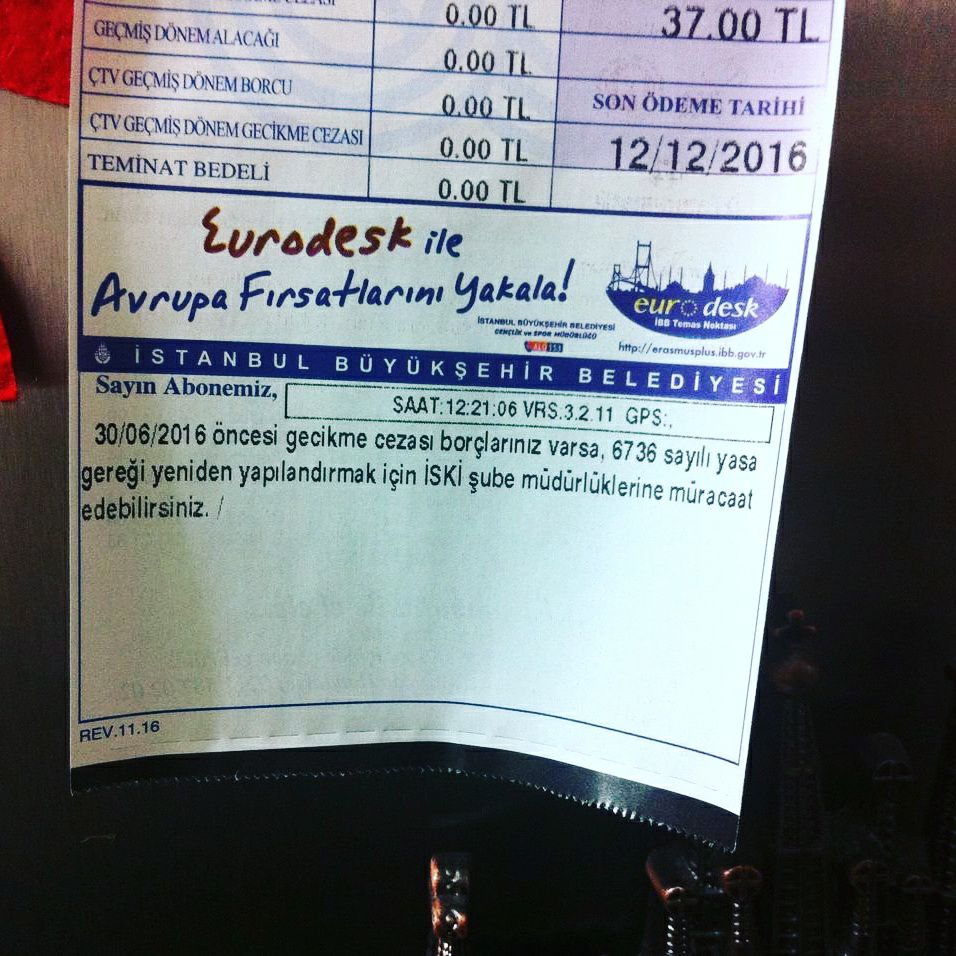 CEZASI
0.00 TL
37.00 TL
GEÇMİŞ DÖNEM ALACAĞI
0.00 TL
ÇTV GEÇMİŞ DÖNEM BORCU
0.00 TL
SON ÖDEME TARİHİ
ÇTV GEÇMİŞ DÖNEM GECİKME CEZASI
0.00 TL
12/12/2016
TEMİNAT BEDELİ
0.00 TL
Eurodesk ile
Avrupa Fırsatlarını Yakala!
eurodesk
İBB Temas Noktası
İSTANBUL BÜYÜKŞEHİR BELEDİYESİ
GENÇLİK ve SPOR MÜDÜRLÜĞÜ
ALO 153
http://erasmusplus.ibb.gov.tr
İSTANBUL BÜYÜKŞEHİR BELEDİYESİ
Sayın Abonemiz,
SAAT:12:21:06 VRS.3.2.11 GPS:,
30/06/2016 öncesi gecikme cezası borçlarınız varsa, 6736 sayılı yasa
gereği yeniden yapılandırmak için İSKİ şube müdürlüklerine müracaat
edebilirsiniz. /
REV.11.16